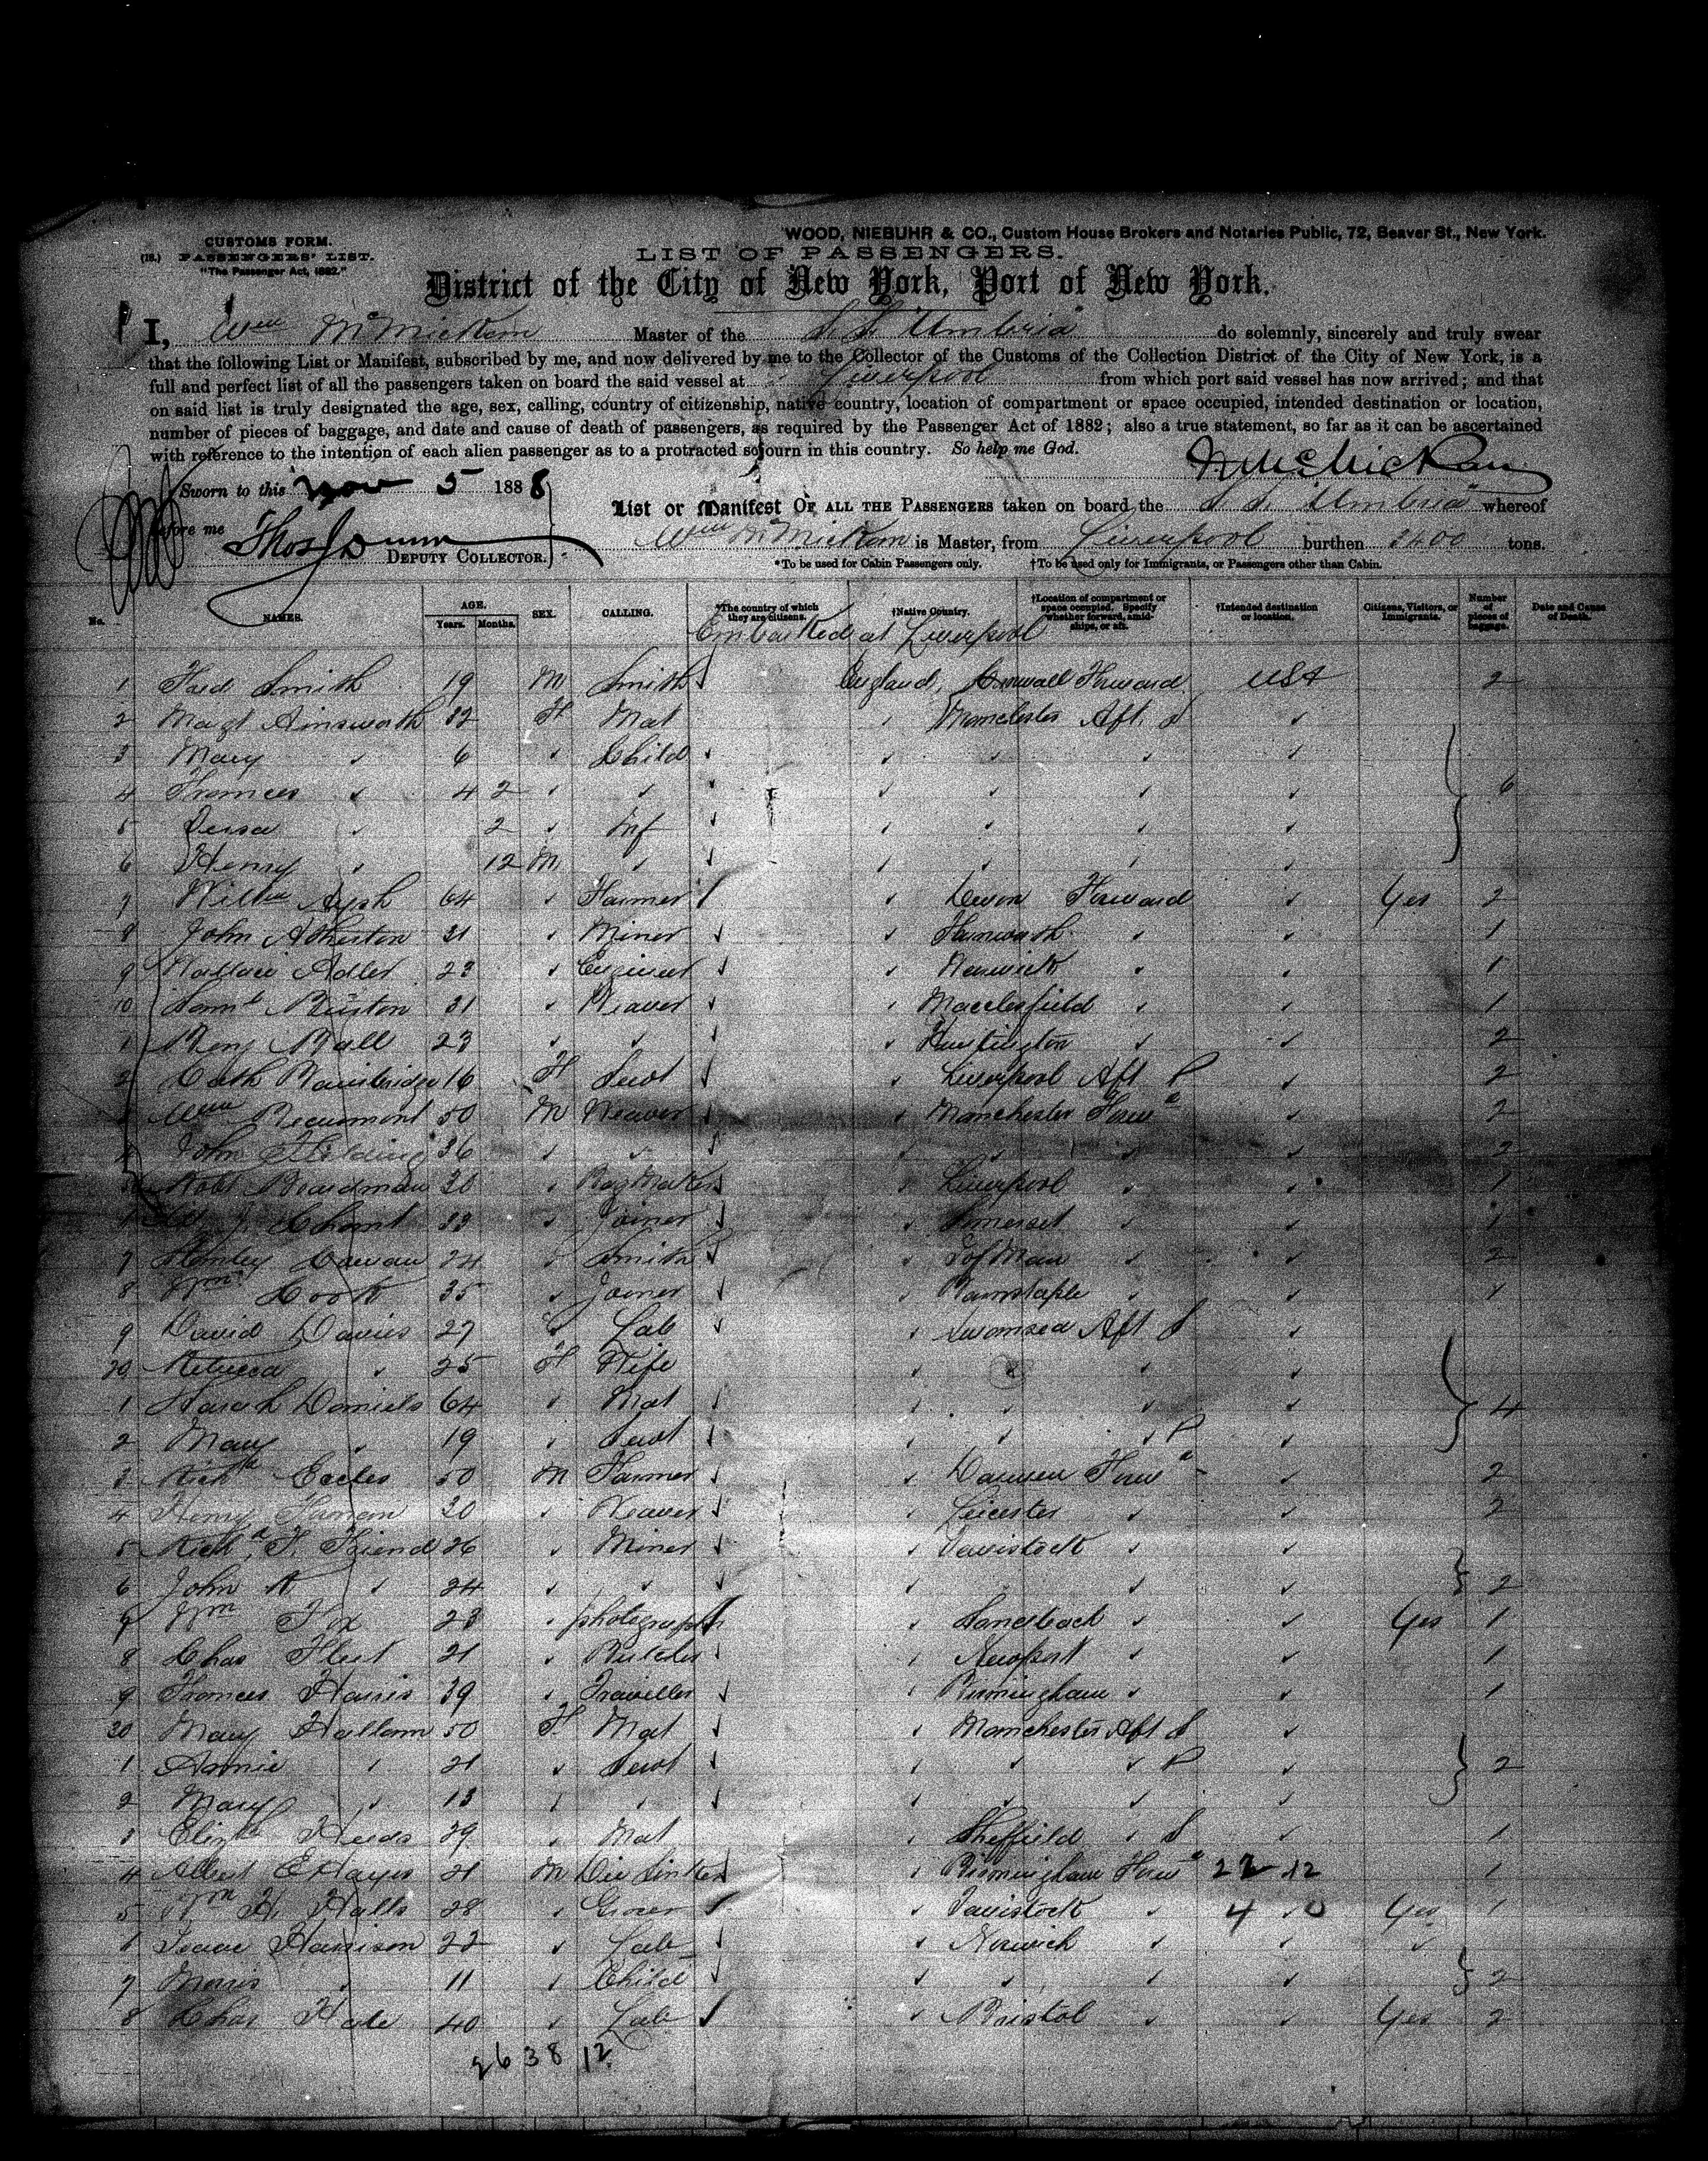 WOOD, NIEBUHR & CO., Custom House Brokers and Notaries Public, 72, Beaver St., New York.
CUSTOMS FORM.
(18.) PASSENGERS' LIST.
"The Passenger Act, 1882."
LIST OF PASSENGERS.
District of the City of New York, Port of New York.
I, Wm McMickan Master of the S.S. "Umbria" do solemnly, sincerely and truly swear
that the following List or Manifest, subscribed by me, and now delivered by me to the Collector of the Customs of the Collection District of the City of New York, is a
full and perfect list of all the passengers taken on board the said vessel at Liverpool from which port said vessel has now arrived; and that
on said list is truly designated the age, sex, calling, country of citizenship, native country, location of compartment or space occupied, intended destination or location,
number of pieces of baggage, and date and cause of death of passengers, as required by the Passenger Act of 1882; also a true statement, so far as it can be ascertained
with reference to the intention of each alien passenger as to a protracted sojourn in this country. So help me God.
W McMickan
Sworn to this Nov 5 1888
before me Thos J Dunn
DEPUTY COLLECTOR.
List or Manifest OF ALL THE PASSENGERS taken on board the S.S. "Umbria" whereof
Wm McMickan is Master, from Liverpool burthen 2400 tons.
*To be used for Cabin Passengers only. †To be used only for Immigrants, or Passengers other than Cabin.
No. NAMES. AGE. Years. Months. SEX. CALLING. *The country of which they are citizens. †Native Country. †Location of compartment or space occupied. Specify whether forward, amidships, or aft. †Intended destination or location. Citizens, Visitors, or Immigrants. Number of pieces of baggage. Date and Cause of Death.
Embarked at Liverpool
1 Fred Smith 19 M Smith England, Cornwall Forward USA 2
2 Margt Ainsworth 32 F Mat Manchester Aft S
3 Mary 6 Child
4 Frances 4 2 6
5 2 Inf
6 Henry 12 M
7 Willm Aysh 64 Farmer Devon Forward Yes 2
8 John Atherton 31 Miner Farnworth 1
9 Wallace Adler 23 Engineer 1
10 Saml 31 Weaver Macclesfield 1
1 Benj Ball 23 2
2 Cath Bainbridge 16 F Servt Liverpool Aft P 2
Wm Beaumont 50 M Weaver Manchester Forwd 2
John 36 2
Robt Boardman Liverpool 1
33 Joiner Somerset 1
7 24 Smith I of Man 2
8 Wm Cook 35 Joiner Barnstaple 1
9 David Davies 27 Lab Swansea Aft S
20 Rebecca 25 F Wife
1 Sarah Daniels 64 Mat 4
2 Mary 19 Servt P
3 Richd Eccles 50 M Farmer Darwen Forwd 2
4 Henry 20 Weaver Leicester 2
5 Richd T. Friend 26 Miner Tavistock
6 John A 24 2
7 Wm Fox 23 photograph Sandbach Yes 1
8 Chas Fleet 21 Butcher Newport 1
9 Frances Harris 39 Traveller Birmingham 1
30 Mary Hallam 50 F Mat Manchester Aft S
1 Annie 21 Servt P 2
2 Mary 13
3 Elizth 29 Mat Sheffield S 1
4 Albert E Hayes 21 M Die Sinker Birmingham Forwd 22 12 1
5 Wm H. Halls 28 Grocer Tavistock 4 0 Yes 1
6 Isaac Harrison 22 Lab Norwich
7 Morris 11 Child 2
8 Chas Hale 40 Lab Bristol Yes 2
26 38 12